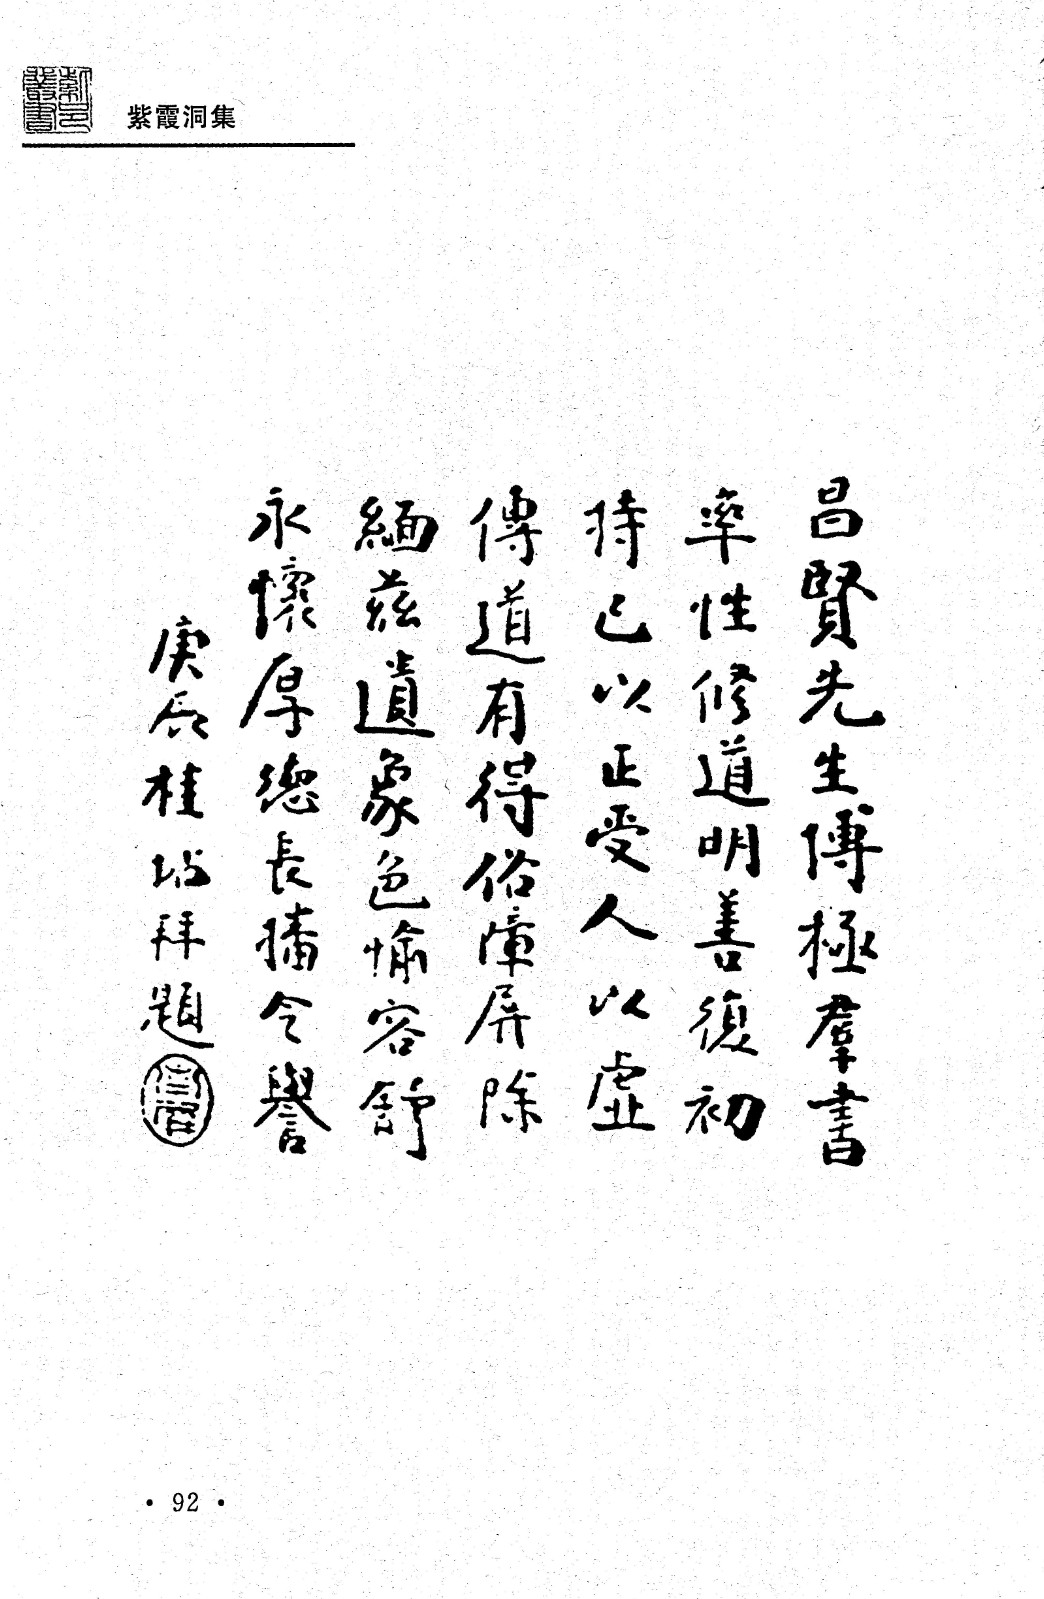 紫霞洞集
昌賢先生博極羣書
率性修道明善復初
持己以正受人以虛
傳道有得俗障屏除
緬茲遺象色愉容舒
永懷厚德長播令譽
庚辰桂坫拜題
· 92 ·